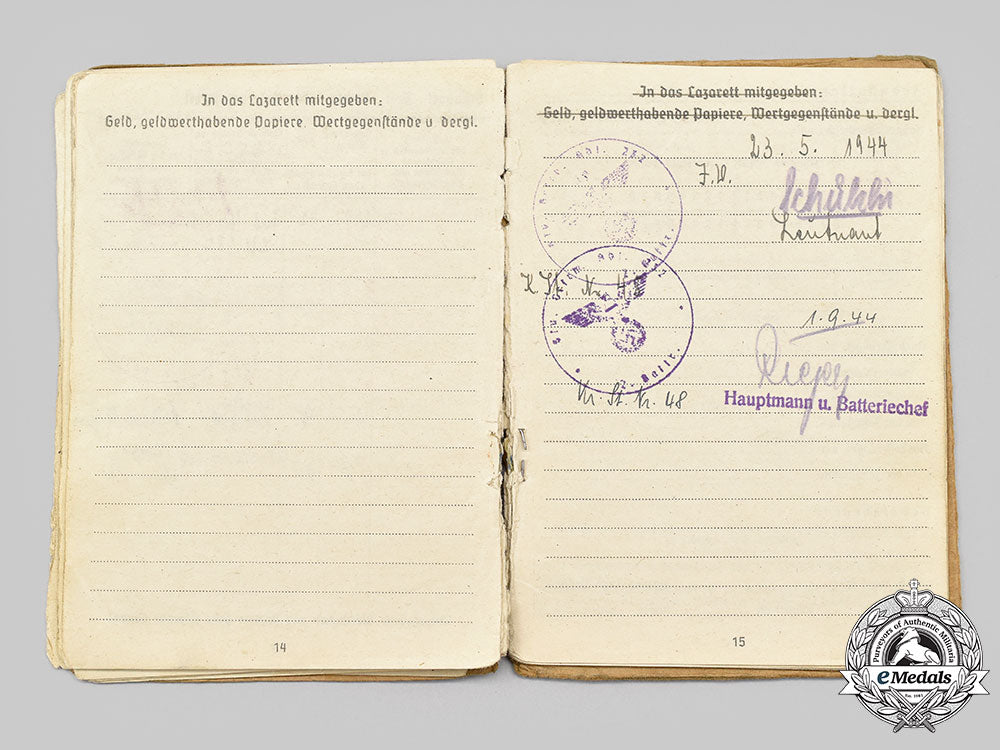 In das Lazarett mitgegeben:
Geld, geldwerthabende Papiere, Wertgegenstände u. dergl.
14
In das Lazarett mitgegeben:
Geld, geldwerthabende Papiere, Wertgegenstände u. dergl.
23. 5. 1944
J.V.
Leutnant
K St. Nr. 4
1.9.44
Kr. St. Nr. 48
Hauptmann u. Batteriechef
2. Battr.
15
Purveyors of Authentic Militaria
eMedals